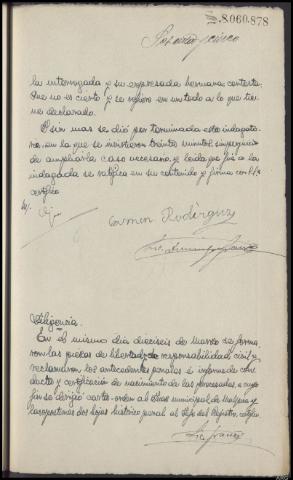 8.060.878
la interrogada y su expresada hermana, contesta:
Que no es cierto y se refiere en un todo a lo que tiene
declarado.
Y sin mas se dió por terminada esta indagato-
ria, en la que se invirtieron treinta minutos, sin perjuicio
de ampliarla caso necesario, y leida por fué a la
indagada se ratifica en su contenido y firma con
certifico
Carmen Rodriguez
Diligencia.
En el mismo dia dieciseis de Marzo se forma
ron las piezas de libertad y de responsabilidad civil y
reclamaron los antecedentes penales e informe de con
ducta y certificación de nacimiento de las procesadas, a cuyo
fin se dirigió carta-orden al municipal de Malpica y
hojas histórico penal al Jefe del Registro, certifico